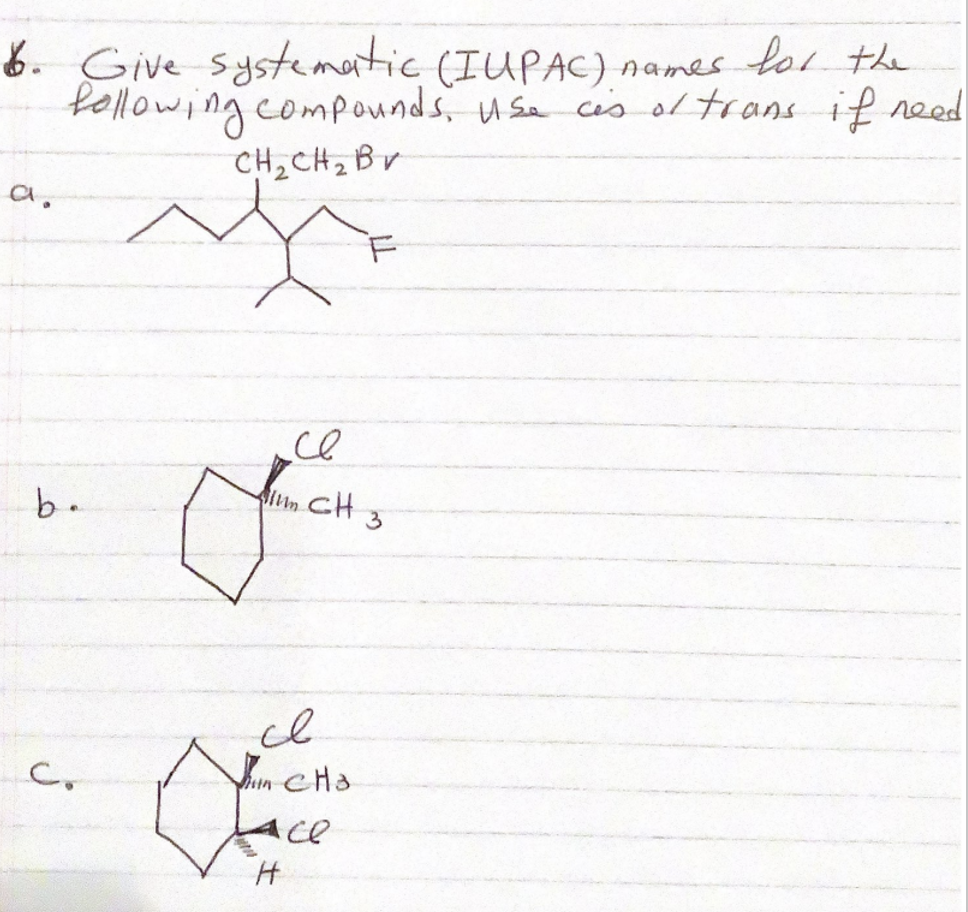 6. Give systematic (IUPAC) names for the
following compounds. Use cis or trans if need
CH2CH2Br
a.
F
Cl
b. CH3
Cl
c. CH3
Cl
H